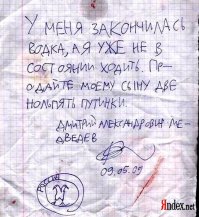 У МЕНЯ ЗАКОНЧИЛАСЬ
ВОДКА, А Я УЖЕ НЕ В
СОСТОЯНИИ ХОДИТЬ. ПР-
ОДАЙТЕ МОЕМУ СЫНУ ДВЕ
НОЛЬПЯТЬ ПУТИНКИ.
ДМИТРИЙ АЛЕКСАНДРОВИЧ МЕ-
ДВЕДЕВ
09.05.09
РОССИЯ
Яndex.net